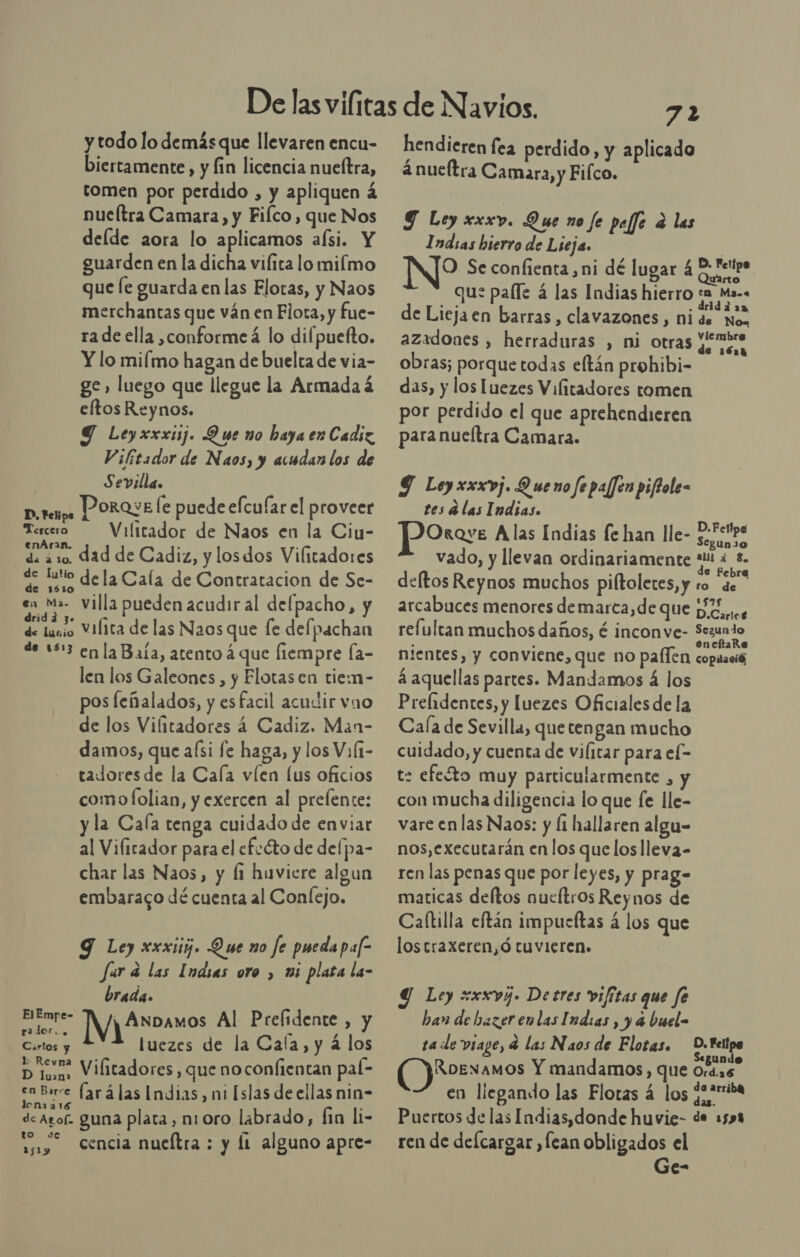 De las visitas de Navios. 72
y todo lo demás que llevaren encu-
biertamente, y sin licencia nuestra,
tomen por perdido, y apliquen á
nuestra Camara, y Fisco, que Nos
desde aora lo aplicamos assi. Y
guarden en la dicha visita lo mismo
que se guarda en las Flotas, y Naos
merchantas que ván en Flota, y fue-
ra de ella, conforme á lo dispuesto.
Y lo mismo hagan de buelta de via-
ge, luego que llegue la Armada á
estos Reynos.
¶ Ley xxxiij. Que no haya en Cadiz
Visitador de Naos, y acudan los de
Sevilla.
D. Felipe
Tercero
en Aran.
da a 10.
de Iulio
de 1610
en Ma-
drid á 3.
de Iunio
de 1613
PORQVE se puede escusar el proveer
Visitador de Naos en la Ciu-
dad de Cadiz, y los dos Visitadores
de la Casa de Contratacion de Se-
villa pueden acudir al despacho, y
visita de las Naos que se despachan
en la Baía, atento á que siempre sa-
len los Galeones, y Flotas en tiem-
pos señalados, y es facil acudir vno
de los Visitadores á Cadiz. Man-
damos, que assi se haga, y los Visi-
tadores de la Casa vsen sus oficios
como solian, y exercen al presente:
y la Casa tenga cuidado de enviar
al Visitador para el efecto de despa-
char las Naos, y si huviere algun
embaraço dé cuenta al Consejo.
¶ Ley xxxiiij. Que no se pueda pas-
sar à las Indias oro, ni plata la-
brada.
El Empe-
rador..
Carlos y
la Reyna
D Iuana
en Barce
lona à 16
de Agos-
to de
1519
MANDAMOS Al Presidente, y
Iuezes de la Casa, y á los
Visitadores, que no consientan pas-
sar á las Indias, ni Islas de ellas nin-
guna plata, ni oro labrado, sin li-
cencia nuestra: y si alguno apre-
hendieren sea perdido, y aplicado
á nuestra Camara, y Fisco.
¶ Ley xxxv. Que no se passe à las
Indias hierro de Lieja.
NO Se consienta, ni dé lugar á
que passe á las Indias hierro
de Lieja en barras, clavazones, ni
azadones, herraduras, ni otras
obras; porque todas están prohibi-
das, y los Iuezes Visitadores tomen
por perdido el que aprehendieren
para nuestra Camara.
D. Felipe
Quarto
en Ma-
drid à 12
de No-
viembre
¶ Ley xxxvj. Que no se passen pistole-
tes à las Indias.
PORQVE A las Indias se han lle-
vado, y llevan ordinariamente
destos Reynos muchos pistoletes, y
arcabuces menores de marca, de que
resultan muchos daños, é inconve-
nientes, y conviene, que no passen
á aquellas partes. Mandamos á los
Presidentes, y Iuezes Oficiales de la
Casa de Sevilla, que tengan mucho
cuidado, y cuenta de visitar para es-
te efecto muy particularmente, y
con mucha diligencia lo que se lle-
vare en las Naos: y si hallaren algu-
nos, executarán en los que los lleva-
ren las penas que por leyes, y prag-
maticas destos nuestros Reynos de
Castilla están impuestas á los que
los traxeren, ó tuvieren.
D. Felipe
Segundo
alli à 8.
de Febre
ro de
1575
D. Carlos
Segundo
en esta Re
copilació
¶ Ley xxxvij. De tres visitas que se
han de hazer en las Indias, y à buel-
ta de viage, à las Naos de Flotas.
ORDENAMOS Y mandamos, que
en llegando las Flotas á los
Puertos de las Indias, donde huvie-
ren de descargar, sean obligados el
D. Felipe
Segundo
Ord. 26
de arriba
das.
Ge-